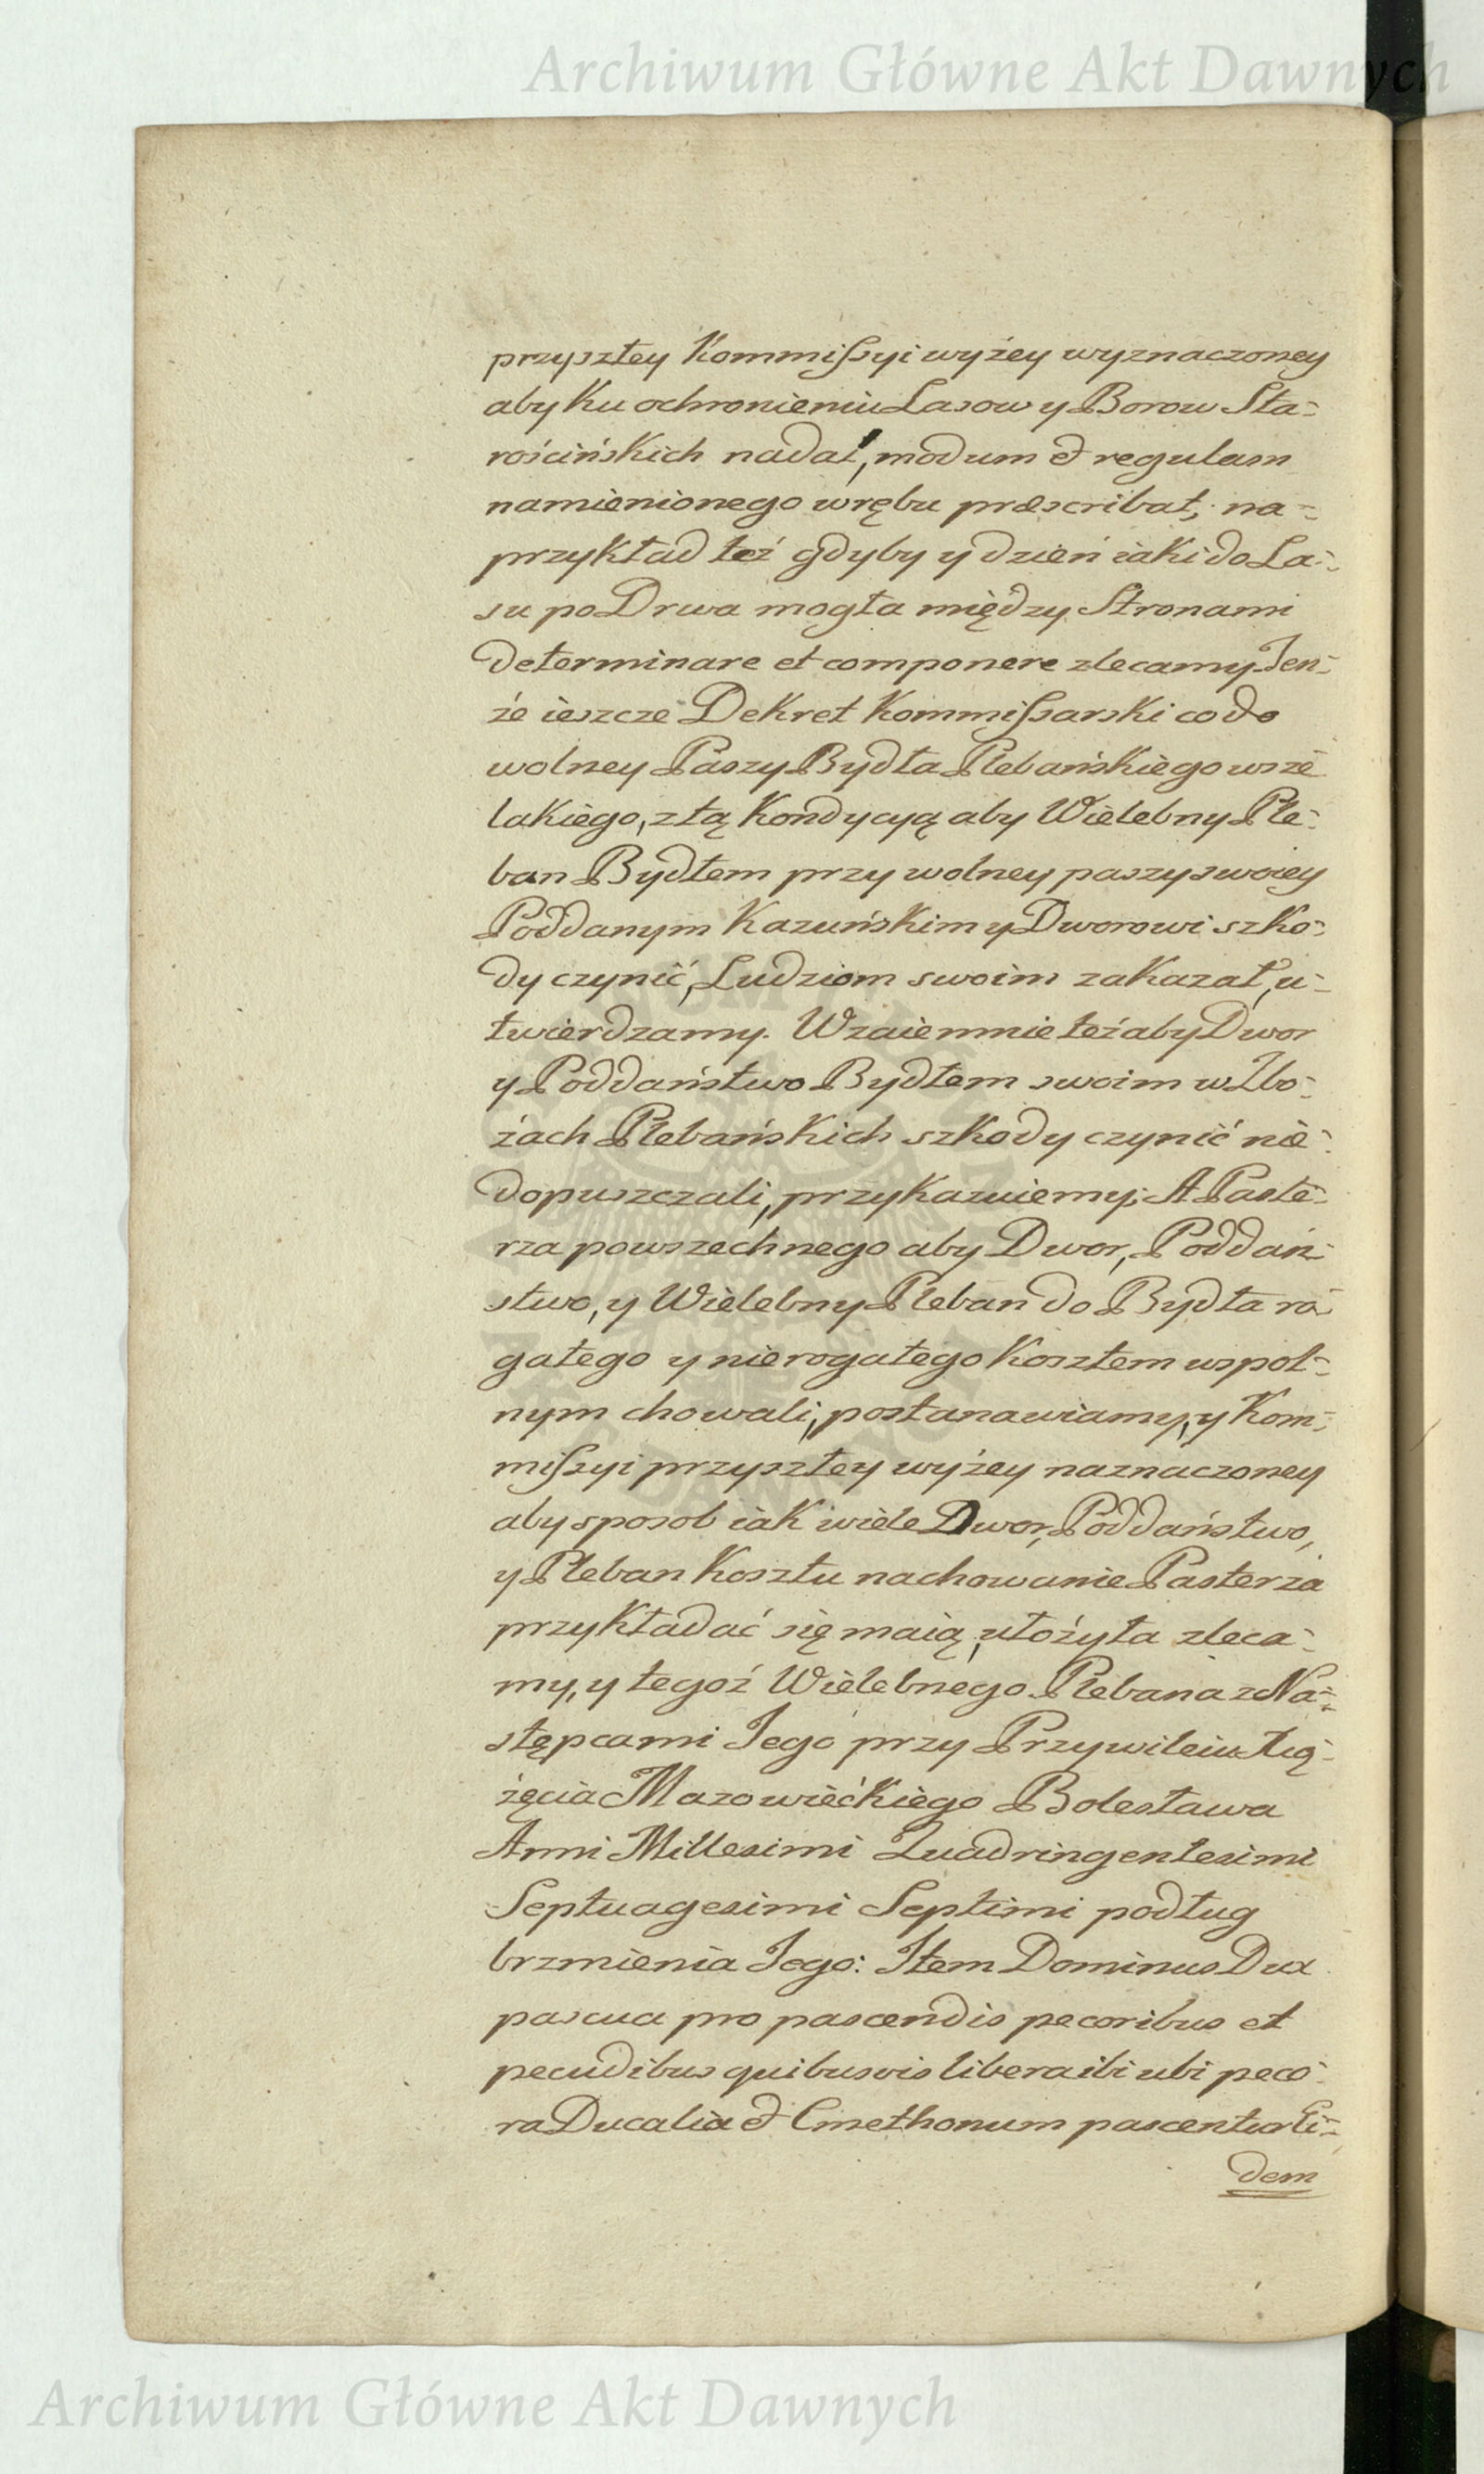 Archiwum Główne Akt Dawnych
przyszłey Kommissyi wyżey wyznaczoney
aby Ku ochronieniu Lasow y Borow Sta-
rościńskich nadał, modum et regulam
namienionego wrębu præscribat, na-
przykład też gdyby y dzień iaki do La-
su po Drwa mogła między Stronami
determinare et componere zlecamy. Ten-
że ieszcze Dekret Kommissarski co do
wolney Paszy Bydła Plebańskiego wsze
lakiego, z tą Kondycyą aby Wielebny Ple-
ban Bydłem przy wolney paszy swoiey
Poddanym Kazuńskim y Dworowi szko-
dy czynić, Ludziom swoim zakazał, u-
twierdzamy. Wzaiemnie też aby Dwor
y Poddaństwo Bydłem swoim w Zbo-
żach Plebańskich szkody czynić nie-
dopuszczali, przykazuiemy; A Paste-
rza powszechnego aby Dwor, Poddań-
stwo, y Wielebny Pleban do Bydła ro-
gatego y nierogatego Kosztem wspol-
nym chowali, postanawiamy, y Kom-
missyi przyszłey wyżey naznaczoney
aby sposob iak wiele Dwor, Poddaństwo,
y Pleban Kosztu na chowanie Pasterza
przykładać się maią, ułożyła zleca-
my, y tegoż Wielebnego Plebana z Na-
stępcami Jego przy Przywileiu Xią-
żęcia Mazowieckiego Bolesława
Anni Millesimi Quadringentesimi
Septuagesimi Septimi podług
brzmienia Jego: Item Dominus Dux
pascua pro pascendis pecoribus et
pecudibus quibusvis libera ibi ubi peco-
ra Ducalia et Cmethonum pascentur Ei-
dem
Archiwum Główne Akt Dawnych